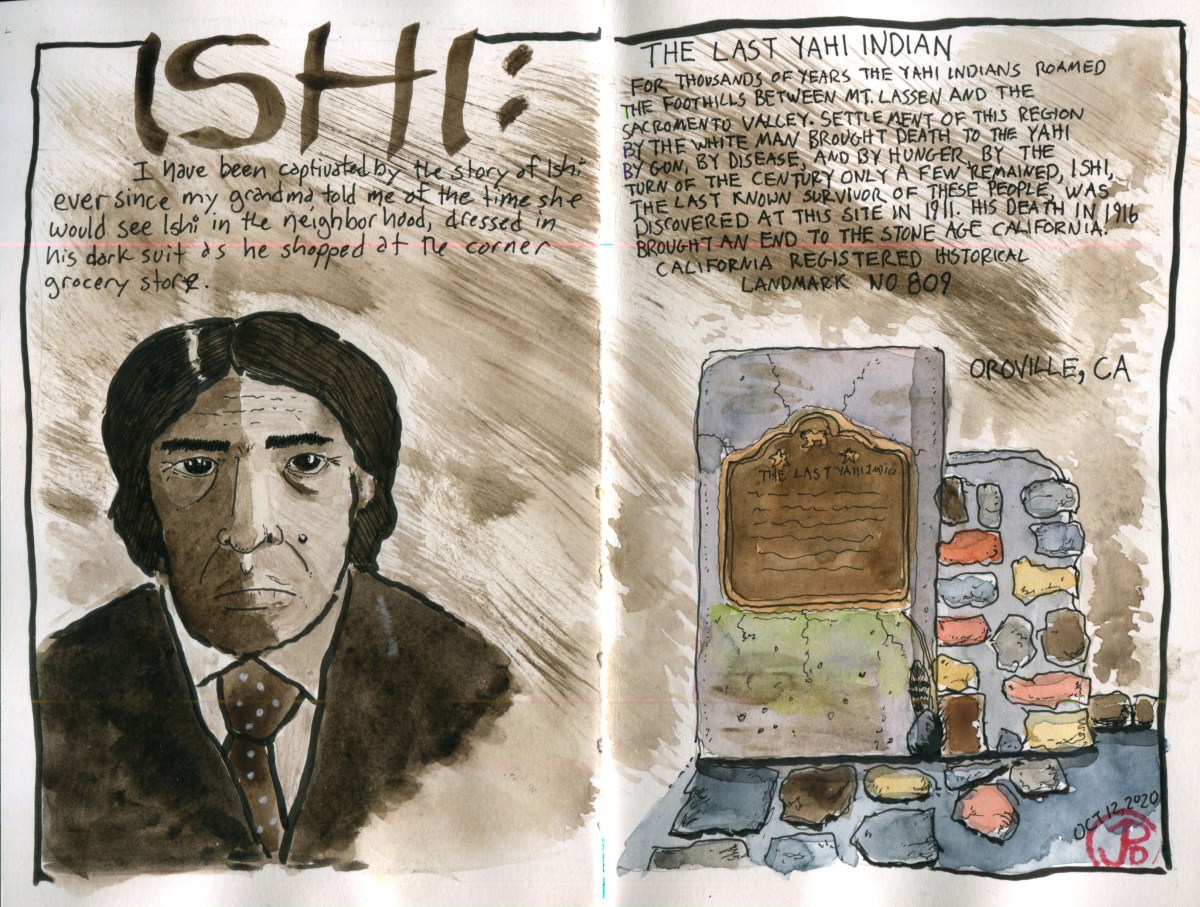 ISHI:
I have been captivated by the story of Ishi
ever since my grandma told me of the time she
would see Ishi in the neighborhood, dressed in
his dark suit as he shopped at the corner
grocery store.
THE LAST YAHI INDIAN
FOR THOUSANDS OF YEARS THE YAHI INDIANS ROAMED
THE FOOTHILLS BETWEEN MT. LASSEN AND THE
SACROMENTO VALLEY. SETTLEMENT OF THIS REGION
BY THE WHITE MAN BROUGHT DEATH TO THE YAHI
BY GUN, BY DISEASE, AND BY HUNGER, BY THE
TURN OF THE CENTURY ONLY A FEW REMAINED, ISHI,
THE LAST KNOWN SURVIVOR OF THESE PEOPLE, WAS
DISCOVERED AT THIS SITE IN 1911. HIS DEATH IN 1916
BROUGHT AN END TO THE STONE AGE CALIFORNIA.
CALIFORNIA REGISTERED HISTORICAL
LANDMARK NO 809
OROVILLE, CA
THE LAST YAHI INDIAN
OCT 12, 2020
JPD